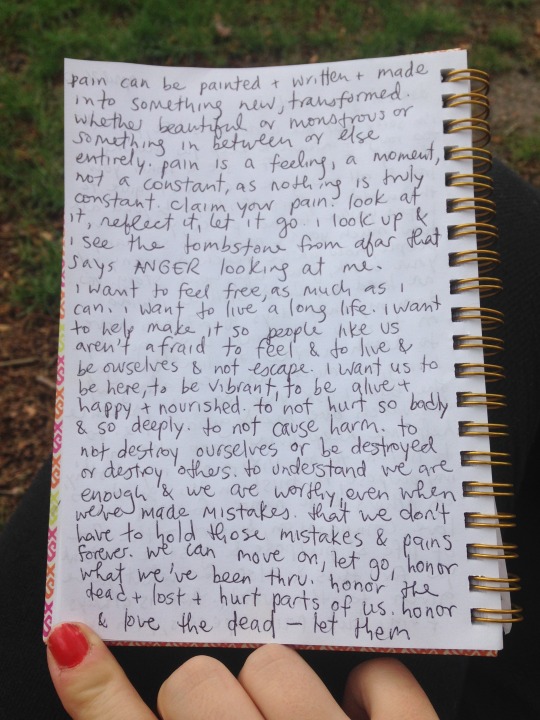 pain can be painted + written + made
into something new, transformed.
whether beautiful or monstrous or
something in between or else
entirely. pain is a feeling, a moment,
not a constant, as nothing is truly
constant. claim your pain. look at
it, reflect it, let it go. i look up &
i see the tombstone from afar that
says ANGER looking at me.
i want to feel free, as much as i
can. i want to live a long life. i want
to help make it so people like us
aren't afraid to feel & to live &
be ourselves & not escape. i want us to
be here, to be vibrant, to be alive +
happy + nourished. to not hurt so badly
& so deeply. to not cause harm. to
not destroy ourselves or be destroyed
or destroy others. to understand we are
enough & we are worthy, even when
we've made mistakes. that we don't
have to hold those mistakes & pains
forever. we can move on, let go, honor
what we've been thru. honor the
dead + lost + hurt parts of us. honor
& love the dead — let them